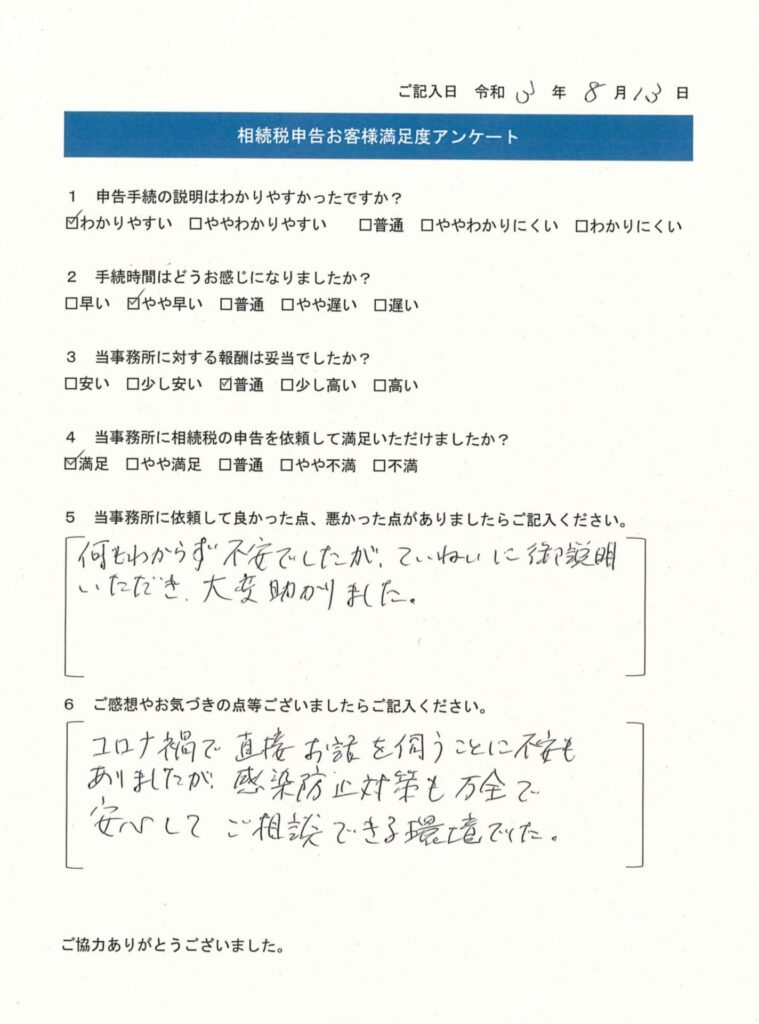 ご記入日 令和 3 年 8 月 13 日
相続税申告お客様満足度アンケート
1 申告手続の説明はわかりやすかったですか？
☑わかりやすい □ややわかりやすい □普通 □ややわかりにくい □わかりにくい
2 手続時間はどうお感じになりましたか？
□早い ☑やや早い □普通 □やや遅い □遅い
3 当事務所に対する報酬は妥当でしたか？
□安い □少し安い ☑普通 □少し高い □高い
4 当事務所に相続税の申告を依頼して満足いただけましたか？
☑満足 □やや満足 □普通 □やや不満 □不満
5 当事務所に依頼して良かった点、悪かった点がありましたらご記入ください。
何もわからず不安でしたが、ていねいに御説明
いただき、大変助かりました。
6 ご感想やお気づきの点等ございましたらご記入ください。
コロナ禍で直接お話を伺うことに不安も
ありましたが、感染防止対策も万全で
安心してご相談できる環境でした。
ご協力ありがとうございました。